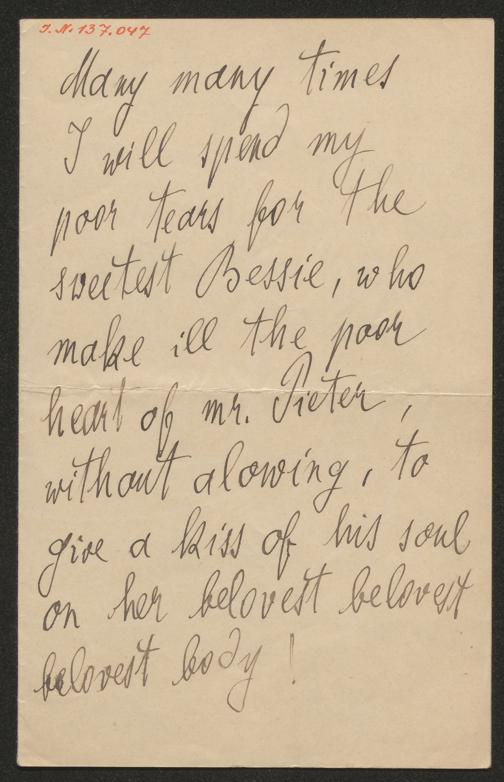 J. N. 137.047
Many many times
I will spend my
poor tears for the
sweetest Bessie, who
make ill the poor
heart of mr. Pieter,
without alowing, to
give a kiss of his soul
on her belovest belovest
belovest body!